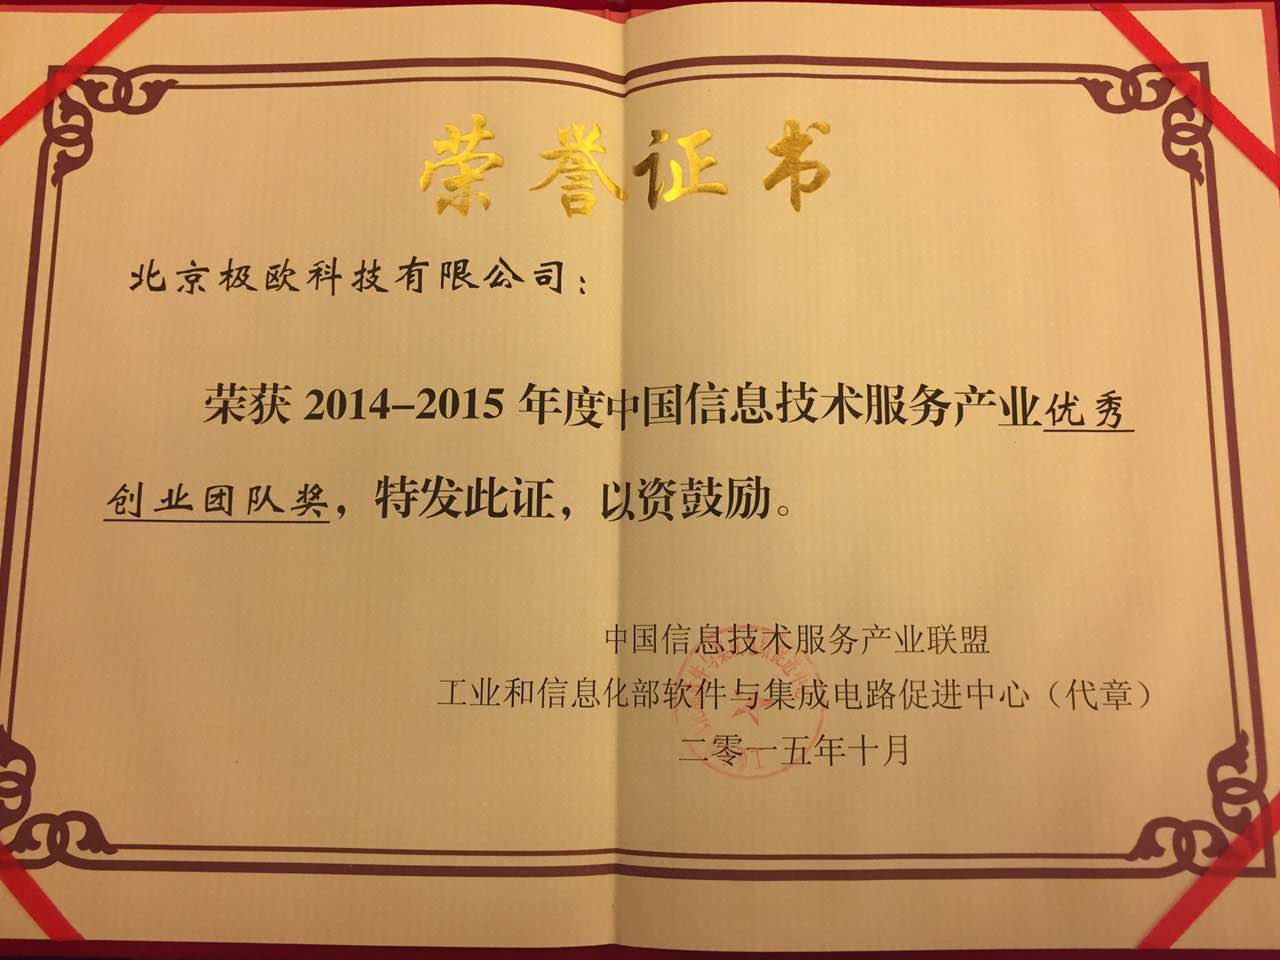 荣誉证书
北京极欧科技有限公司：
荣获 2014-2015 年度中国信息技术服务产业优秀
创业团队奖，特发此证，以资鼓励。
中国信息技术服务产业联盟
工业和信息化部软件与集成电路促进中心（代章）
二零一五年十月